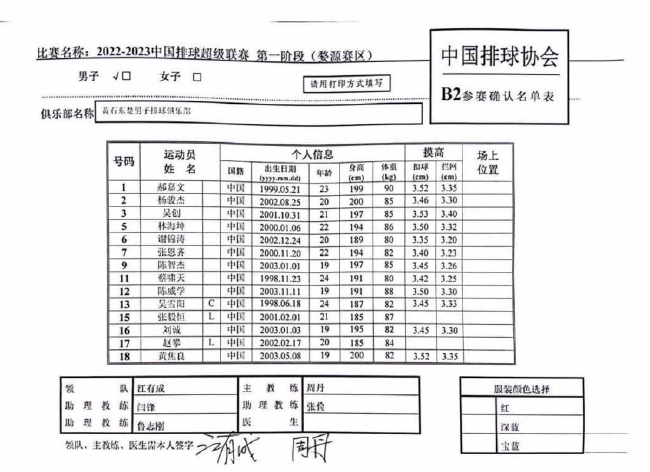 比赛名称：2022-2023中国排球超级联赛 第一阶段（婺源赛区）
中国排球协会
B2参赛确认名单表
男子 √□ 女子 □
请用打印方式填写
俱乐部名称 黄石东楚男子排球俱乐部
号码 运动员姓名 个人信息 摸高 场上位置
国籍 出生日期(yyyy.mm.dd) 年龄 身高(cm) 体重(kg) 扣球(cm) 拦网(cm)
1 郝嘉文 中国 1999.05.21 23 199 90 3.52 3.35
2 杨骏杰 中国 2002.08.25 20 200 85 3.46 3.30
3 吴创 中国 2001.10.31 21 197 85 3.53 3.40
5 林海坤 中国 2000.01.06 22 194 86 3.50 3.32
6 谢锦涛 中国 2002.12.24 20 189 80 3.35 3.20
7 张恩齐 中国 2000.11.20 22 194 82 3.40 3.23
9 陈智杰 中国 2003.01.01 19 197 85 3.45 3.26
11 蔡啸天 中国 1998.11.23 24 191 80 3.42 3.25
12 陈威学 中国 2003.11.11 19 191 88 3.50 3.30
13 吴雪阳 C 中国 1998.06.18 24 187 82 3.45 3.33
15 张毅恒 L 中国 2001.02.01 21 185 87
16 刘诚 中国 2003.01.03 19 195 82 3.45 3.30
17 赵攀 L 中国 2002.02.17 20 185 84
18 黄焦良 中国 2003.05.08 19 200 82 3.52 3.35
领队 江有成 主教练 周丹
助理教练 闫锋 助理教练 张俭
助理教练 鲁志刚 医生
服装颜色选择
红
深蓝
宝蓝
领队、主教练、医生需本人签字 江有成 周丹